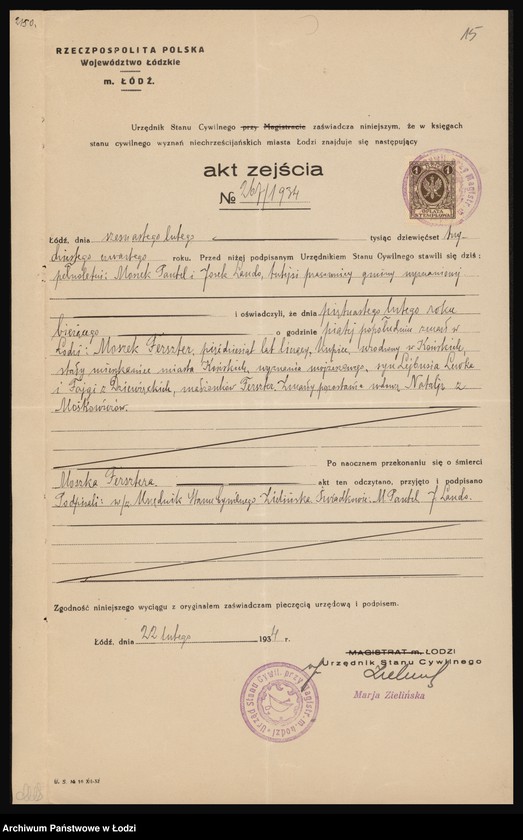 2150.
15
RZECZPOSPOLITA POLSKA
Województwo Łódzkie
m. ŁÓDŹ.
Urzędnik Stanu Cywilnego przy Magistracie zaświadcza niniejszym, że w księgach
stanu cywilnego wyznań niechrześcijańskich miasta Łodzi znajduje się następujący
akt zejścia
№ 267/1934
1 1
OPŁATA
STEMPLOWA
Łódź, dnia szesnastego lutego tysiąc dziewięćset trzy-
dziestego czwartego roku. Przed niżej podpisanym Urzędnikiem Stanu Cywilnego stawili się dziś:
pełnoletni: Moszek Pantel i Josek Lando, tutejsi pracownicy gminy wyznaniowej
i oświadczyli, że dnia piętnastego lutego roku
bieżącego o godzinie piątej popołudniu zmarł w
Łodzi: Moszek Ferszter, pięćdziesiąt lat liczący, kupiec, urodzony w Końskich,
stały mieszkaniec miasta Końskich, wyznania mojżeszowego, syn Lejbusia Lewka
i Fajgi z Dziewięckich, małżonków Ferszter. Zmarły pozostawia wdowę Natalję z
Moszkowiczów.
Po naocznem przekonaniu się o śmierci
Moszka Fersztera. akt ten odczytano, przyjęto i podpisano
Podpisali: w/z Urzędnik Stanu Cywilnego Zielińska. Świadkowie: M Pantel J. Lando.
Zgodność niniejszego wyciągu z oryginałem zaświadczam pieczęcią urzędową i podpisem.
Łódź, dnia 22 lutego 1934 r.
MAGISTRAT m. ŁODZI
Urzędnik Stanu Cywilnego
Marja Zielińska
Urząd Stanu Cywil. przy Magistr. m. Łodzi
Archiwum Państwowe w Łodzi